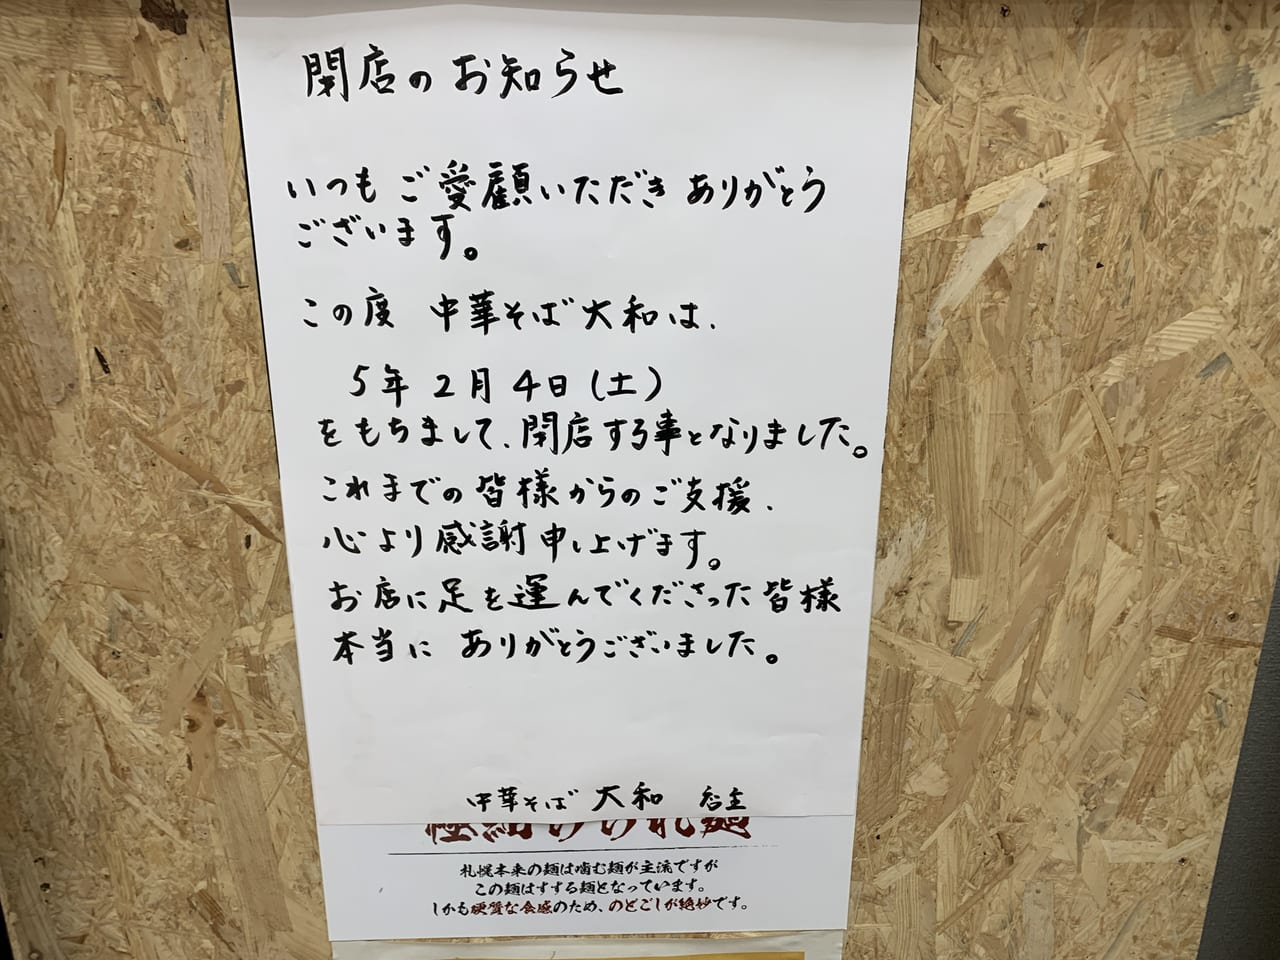 閉店のお知らせ
いつもご愛顧いただきありがとう
ございます。
この度 中華そば大和は、
5年2月4日(土)
をもちまして、閉店する事となりました。
これまでの皆様からのご支援、
心より感謝申し上げます。
お店に足を運んでくださった皆様
本当に ありがとうございました。
中華そば 大和 店主
札幌本来の麺は噛む麺が主流ですが
この麺はすする麺となっています。
しかも硬質な食感のため、のどごしが絶妙です。